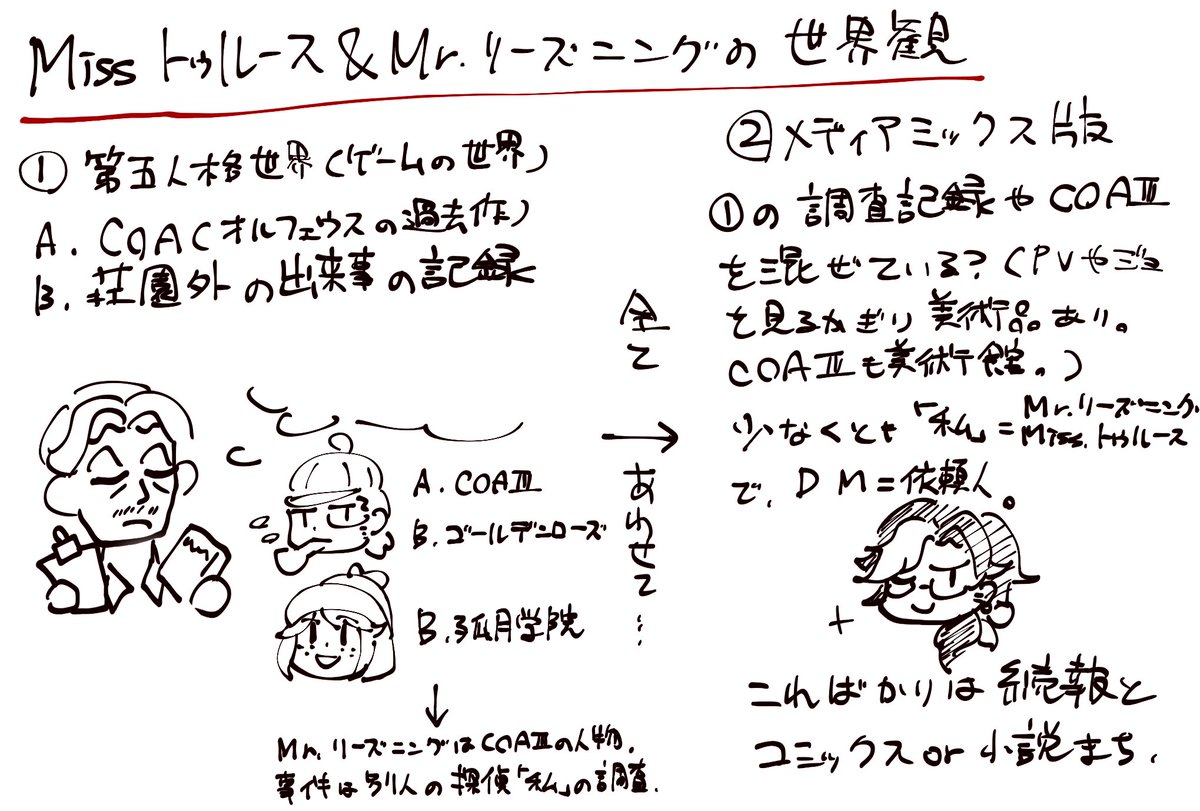 Miss トゥルース&Mr.リーズニングの世界観
① 第五人格世界(ゲームの世界)
A. COA(オルフェウスの過去作)
B. 荘園外の出来事の記録
A. COAⅢ
B. ゴールデンローズ
B. 弧月学院
↓
Mr.リーズニングはCOAⅢの人物。
事件は別人の探偵「私」の調査。
→
全て
あわせて…
② メディアミックス版
①の調査記録やCOAⅢ
を混ぜている?(PVやビジュ
を見るかぎり美術品あり。
COAⅢも美術館。)
少なくとも「私」=Mr.リーズニング
Miss.トゥルース
で、DM=依頼人。
+
こればかりは続報と
コミックスor小説まち。